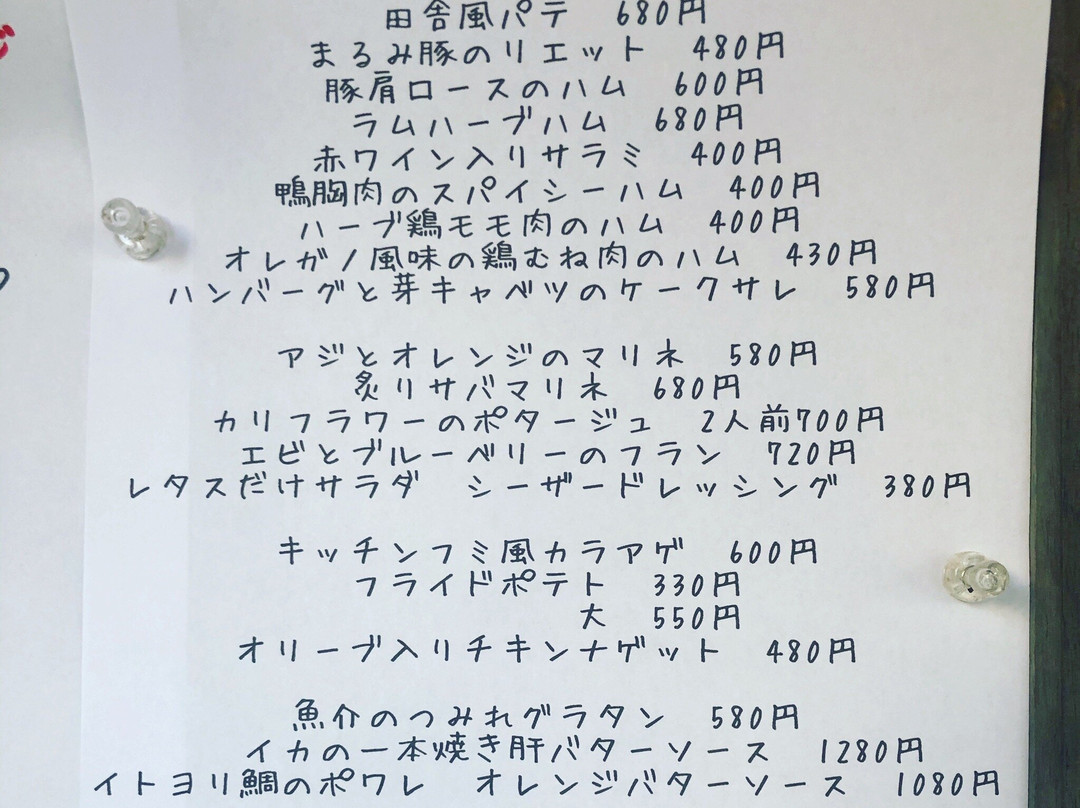 田舎風パテ 680円
まるみ豚のリエット 480円
豚肩ロースのハム 600円
ラムハーブハム 680円
赤ワイン入りサラミ 400円
鴨胸肉のスパイシーハム 400円
ハーブ鶏モモ肉のハム 400円
オレガノ風味の鶏むね肉のハム 430円
ハンバーグと芽キャベツのケークサレ 580円
アジとオレンジのマリネ 580円
炙りサバマリネ 680円
カリフラワーのポタージュ 2人前700円
エビとブルーベリーのフラン 720円
レタスだけサラダ シーザードレッシング 380円
キッチンフミ風カラアゲ 600円
フライドポテト 330円
大 550円
オリーブ入りチキンナゲット 480円
魚介のつみれグラタン 580円
イカの一本焼き肝バターソース 1280円
イトヨリ鯛のポワレ オレンジバターソース 1080円